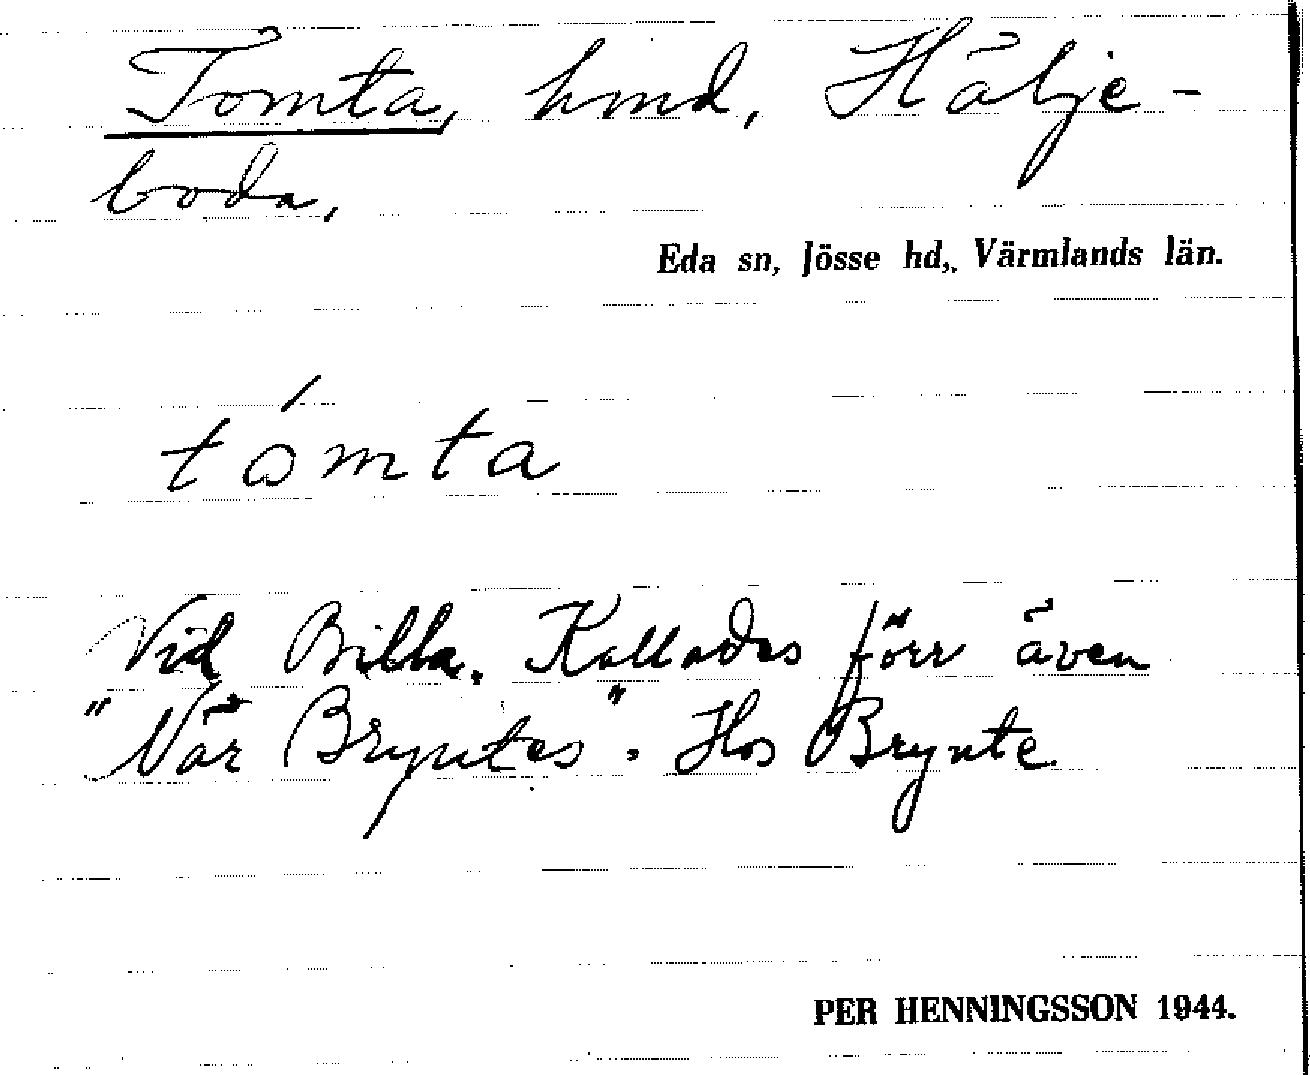 Tomta, hmd, Hälje-
boda,
Eda sn, Jösse hd, Värmlands län.
tómta
Vid Billa. Kallades förr även
"När Bryntes". Hos Brynte
PER HENNINGSSON 1944.